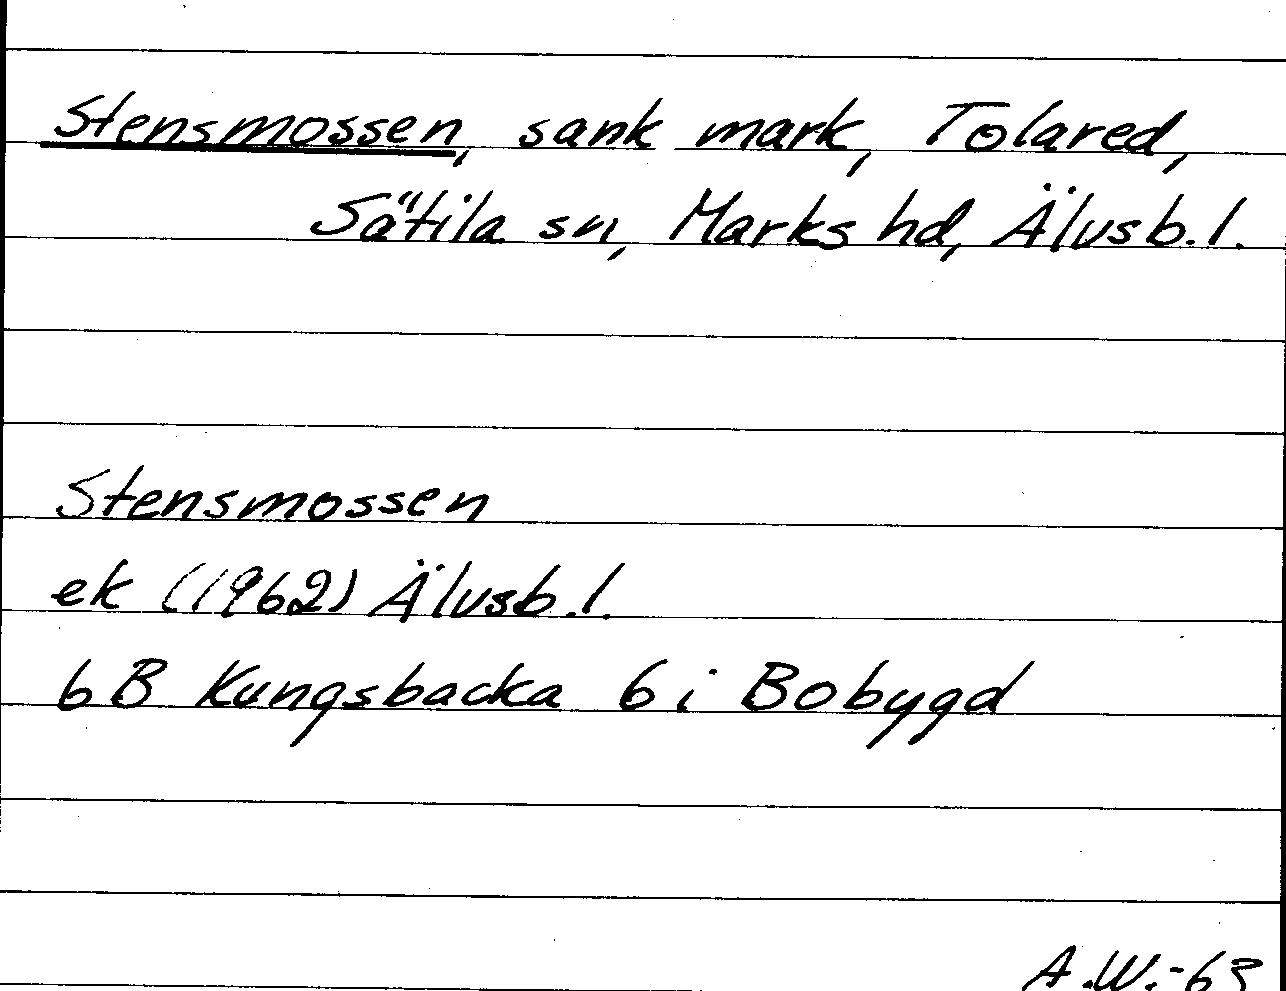 Stensmossen, sank mark, Tolared,
Sätila sn, Marks hd, Älvsb. l.
Stensmossen
ek (1962) Älvsb. l.
6B Kungsbacka 6 i Bobygd
A.W.-63